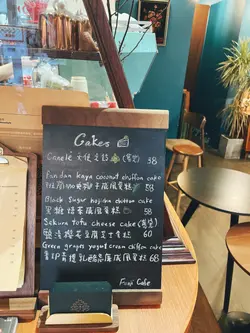 Cakes
Canelé 天使之鈴 38
Pandan kaya coconut chiffon cake
戚風蛋糕 58
Black sugar hojicha chiffon cake
黑糖焙茶戚風蛋糕 58
Sakura tofu cheese cake
鹽漬櫻花豆腐芝士蛋糕 60
Green grapes yogurt cream chiffon cake
戚風蛋糕 68
Cake